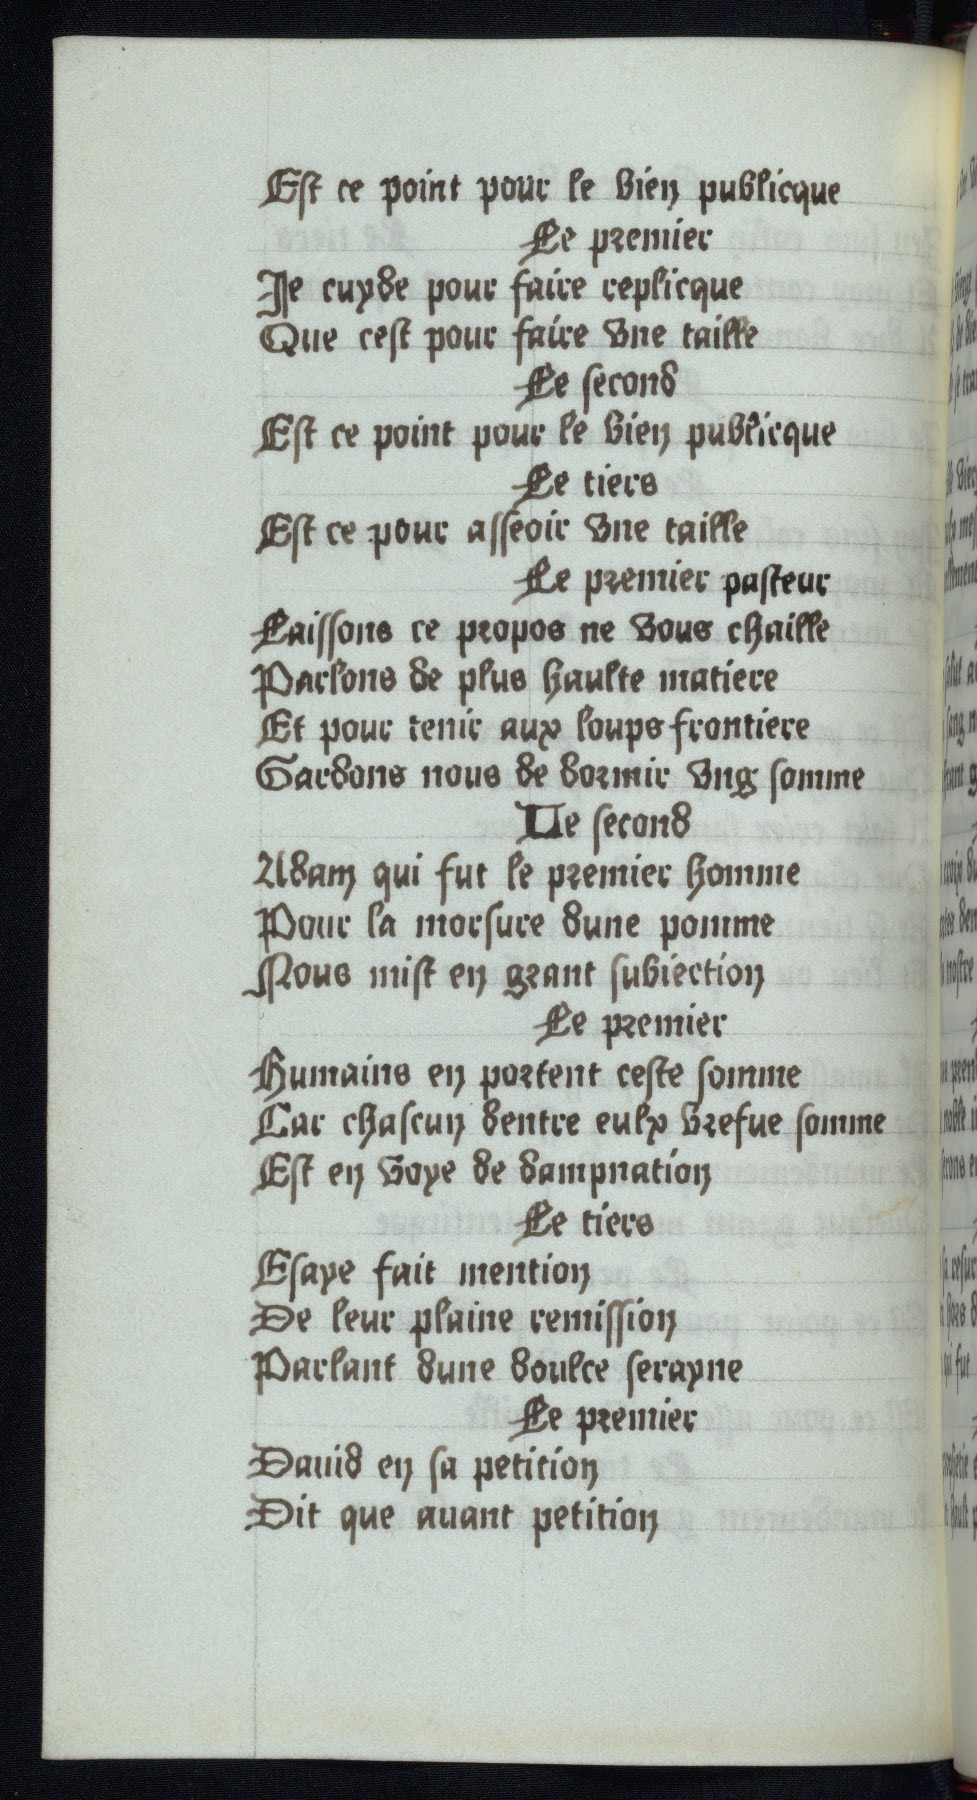 Est ce point pour le bien publicque
Le premier
Je cuyde pour faire replicque
Que cest pour faire vne taille
Le second
Est ce point pour le bien publicque
Le tiers
Est ce pour asseoir vne taille
Le premier pasteur
Laissons ce propos ne vous chaille
Parlons de plus haulte matiere
Et pour tenir aux loups frontiere
Gardons nous de dormir vng somme
Le second
Adam qui fut le premier homme
Pour la morsure dune pomme
Nous mist en grant subiection
Le premier
Humains en portent ceste somme
Car chascun dentre eulx brefue somme
Est en voye de dampnation
Le tiers
Esaye fait mention
De leur plaine remission
Parlant dune doulce serayne
Le premier
Dauid en sa peticion
Dit que auant petition